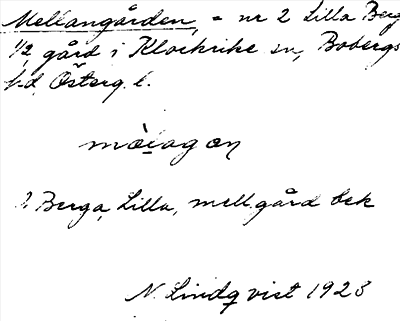 Mellangården, = nr 2 Lilla Berg
1/2 gård i Klockrike sn, Bobergs
hd, Österg. l.
Berga, Lilla, mell.gård bek
N. Lindqvist 1923